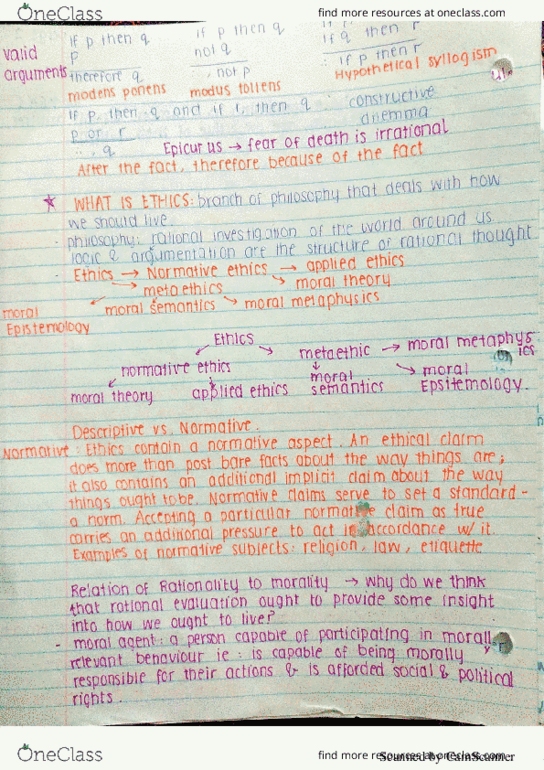 OneClass
find more resources at oneclass.com
if p then q
if p then q
if q then r
valid
p
not q
arguments
therefore q
∴ not p
∴ if p then r
modens ponens
modus tollens
Hypothetical syllogism
if p, then q and if r, then q
constructive
p or r
dilemma
∴ q
Epicurus → fear of death is irrational
After the fact, therefore because of the fact
WHAT IS ETHICS: branch of philosophy that deals with how
we should live.
- philosophy: rational investigation of the world around us
logic & argumentation are the structure of rational thought
- Ethics → Normative ethics → applied ethics
→ meta ethics → moral theory
moral
moral semantics → moral metaphysics
Epistemology
Ethics
normative ethics
metaethic → moral metaphysics
moral theory
applied ethics
moral semantics
moral Epsitemology
Descriptive vs. Normative.
Normative: Ethics contain a normative aspect. An ethical claim
does more than post bare facts about the way things are;
it also contains an additional implicit claim about the way
things ought to be. Normative claims serve to set a standard -
a norm. Accepting a particular normative claim as true
carries an additional pressure to act in accordance w/ it.
Examples of normative subjects: religion, law, etiquette
Relation of Rationality to morality → why do we think
that rational evaluation ought to provide some insight
into how we ought to live?
- moral agent: a person capable of participating in morally
relevant behaviour ie: is capable of being morally
responsible for their actions & is afforded social & political
rights.
OneClass
find more resources at oneclass.com
Scanned by CamScanner